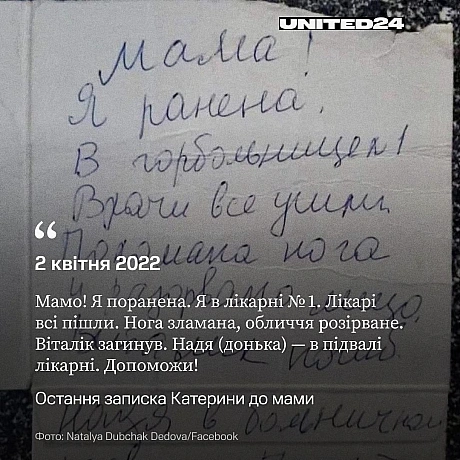 UNITED24
Мама!
Я ранена.
В горбольнице №1
Врачи все ушли
Поломана нога
и разорвано лицо
“
2 квітня 2022
Мамо! Я поранена. Я в лікарні №1. Лікарі
всі пішли. Нога зламана, обличчя розірване.
Віталік загинув. Надя (донька) — в підвалі
лікарні. Допоможи!
Остання записка Катерини до мами
Надя в
Фото: Natalya Dubchak Dedova/Facebook